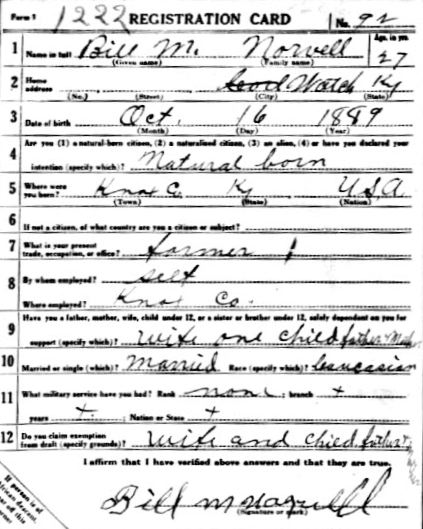 Form 1 1222 REGISTRATION CARD No. 92
1 Name in full Bill M. Norvell Age, in yrs. 27
(Given name) (Family name)
2 Home address Good Watch Ky
(No.) (Street) (City) (State)
3 Date of birth Oct. 16 1889
(Month) (Day) (Year)
4 Are you (1) a natural-born citizen, (2) a naturalized citizen, (3) an alien, (4) or have you declared your
intention (specify which)? Natural born
5 Where were you born? Knox C. Ky USA
(Town) (State) (Nation)
6 If not a citizen, of what country are you a citizen or subject?
7 What is your present trade, occupation, or office? farmer 1
8 By whom employed? self
Where employed? Knox Co.
9 Have you a father, mother, wife, child under 12, or a sister or brother under 12, solely dependent on you for
support (specify which)? wife one child father
10 Married or single (which)? Married Race (specify which)? Caucasian
11 What military service have you had? Rank none ; branch +
years + ; Nation or State +
12 Do you claim exemption from draft (specify grounds)? wife and child father
I affirm that I have verified above answers and that they are true.
Bill M Norvell
(Signature or mark)
If person is of
African descent,
off this
corner